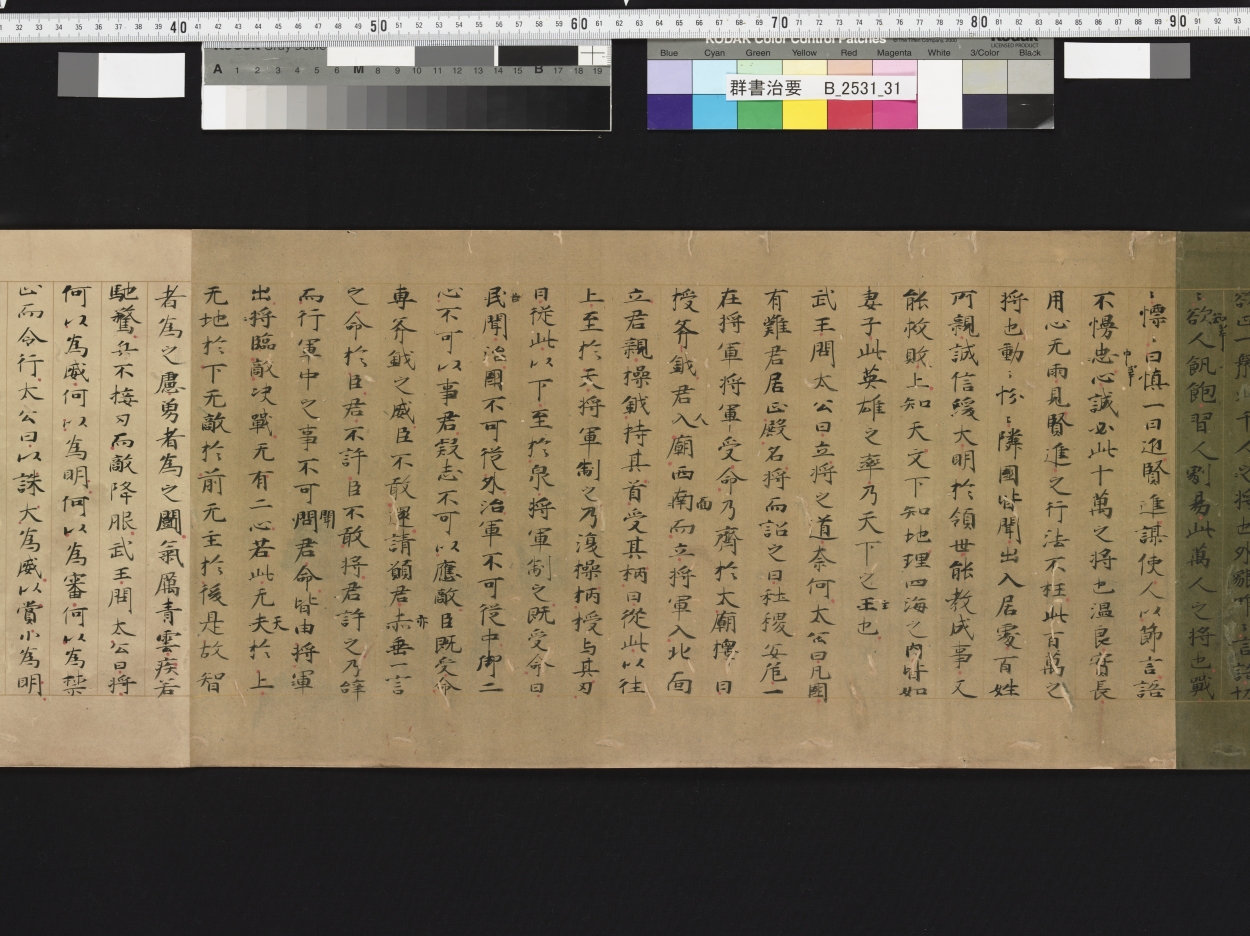 群書治要 B_2531_31
KODAK Color Control Patches
Blue Cyan Green Yellow Red Magenta White 3/Color Black
A 1 2 3 4 5 6 M 8 9 10 11 12 13 14 15 B 17 18 19
欲人飢飽習人劇易此萬人之将也戰
慄日慎一日近賢進謀使人以節言語
不慢忠心誠必此十萬之将也温良實長
用心无兩見賢進之行法不枉此百萬之
将也動〻怱〻隣國皆聞出入居處百姓
所親誠信緩大明於領世能教成事又
能救敗上知天文下知地理四海之内皆如
妻子此英雄之率乃天下之主也
武王問太公曰立将之道奈何太公曰凡國
有難君居正殿名将而詔之曰社稷安危一
在将軍将軍受命乃齋於太廟擇日
授斧鉞君入廟西面而立将軍入北面
立君親操鉞持其首受其柄曰從此以往
上至於天将軍制之乃復操柄授与其刃
曰從此以下至於泉将軍制之既受命曰
臣聞治國不可從外治軍不可從中御二
心不可以事君疑志不可以應敵臣既受命
專斧鉞之威臣不敢還請願君亦垂一言
之命於臣君不許臣不敢将君許之乃辝
而行軍中之事不可聞君命皆由将軍
出将臨敵决戰无有二心若此无天於上
无地於下无敵於前无主於後是故智
者為之慮勇者為之鬪氣厲青雲疾若
馳騖兵不接刃而敵降服武王問太公曰将
何以為威何以為明何以為審何以為禁
止而令行太公曰以誅大為威以賞小為明